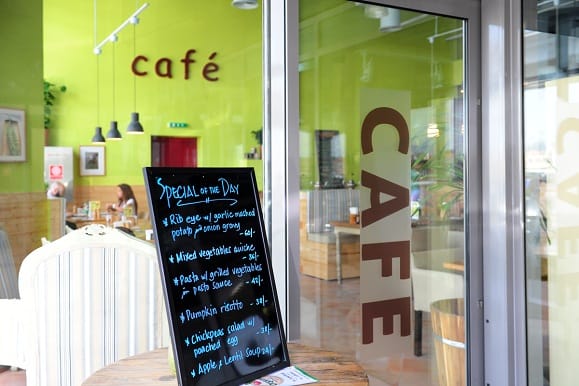 café
CAFE
Special of the Day
* Rib eye w/ garlic mashed
potato & onion gravy
- 60/-
* Mixed vegetables quiche
- 36/-
* Pasta w/ grilled vegetables
in pasta sauce - 45/-
* Pumpkin risotto - 38/-
* Chickpeas salad w/
poached egg - 38/-
* Apple & Lentil Soup